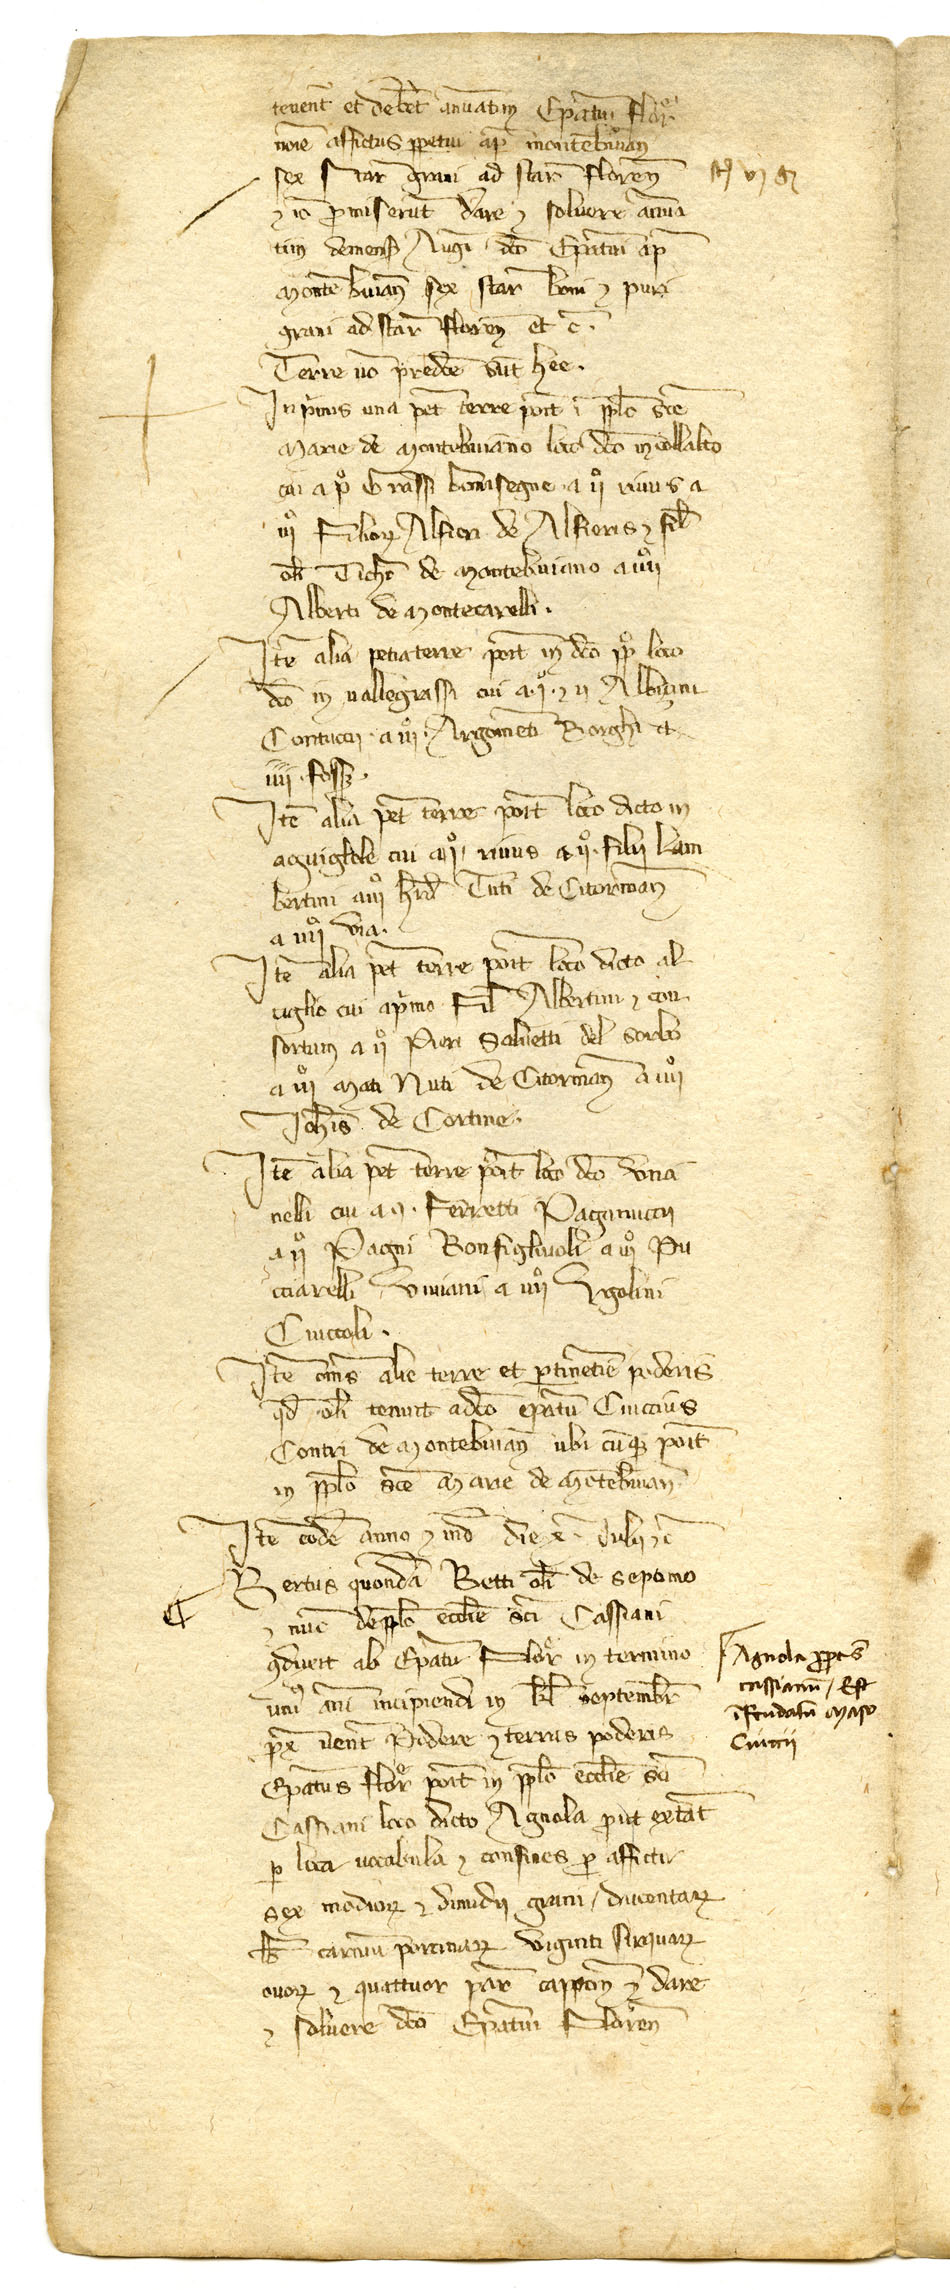 tenent et debet annuatim Epatui flor
noie affictus ppetui ap montebuian
sex star grani ad star floren
st vj g
7 io promiserut dare 7 solvere annua
tim de mens Augi dco Epatui ap
Monte buian sex star boni 7 puri
grani ad star floren et c.
Terre uo predce sut hee.
In primis una pet terre poit i pplo sce
Marie de Montebuiano loco dco in collalto
cui a po Grassi bonasegne a ii rivus a
iii Filior Alfieri de Alfieris 7 fil
oli Tichi de Montebuiano a iiii
Alberti de Montecarelli.
Ite alia petia terre poit in dco pplo loco
dco in vallegrassi cui a i 7 ii Albizini
Contucci a iii Argometi Borghi a
iiii foss.
Ite alia pet terre poit loco dicto in
aguigliole cui a i rivus a ii filii Lam
bertini a iii hrd Tuti de Citornian
a iiii via.
Ite alia pet terre poit loco dicto al
uglio cui a primo Fil Albertini 7 con
sortum a ii Pieri Salvetti del sorbo
a iii Mati Nuti de Citornian a iiii
Johis de Cortine.
Ite alia pet terre poit loco dco
nelli cui a i Ferretti Paganucci
a ii Pagni Bonfigliuoli a iii Pu
cciarelli Viviani a iiii Ugolini
Ciuccoli.
Ite oms alie terre et ptinetie poderis
qd oli tenuit a dco epatu Ciuccius
Contri de Montebuian ubi cuq poit
in pplo sce Marie de Montebuian
Ite eode anno 7 ind die x Iulii 7 c
Bertus quonda Betti oli de septimo
7 nuc de pplo ecclie sci Cassiani
9duxit ab Epatu Flor in termino
uni ani incipiendi in kl septembr
prox uent Podere 7 terras poderis
Epatus flor poit in pplo ecclie sci
Cassiani loco dicto Agnola prout extat
p loca uocabula 7 confines pro affictu
sex modior 7 dimidii grani / ducentar
lb carniu porcinar viginti serquar
ouor 7 quattuor par capponu 7 dare
7 solvere dco Epatui Floren
Agnola pptis
cassianu / Est
ifeudatu Maso
Ciuccii